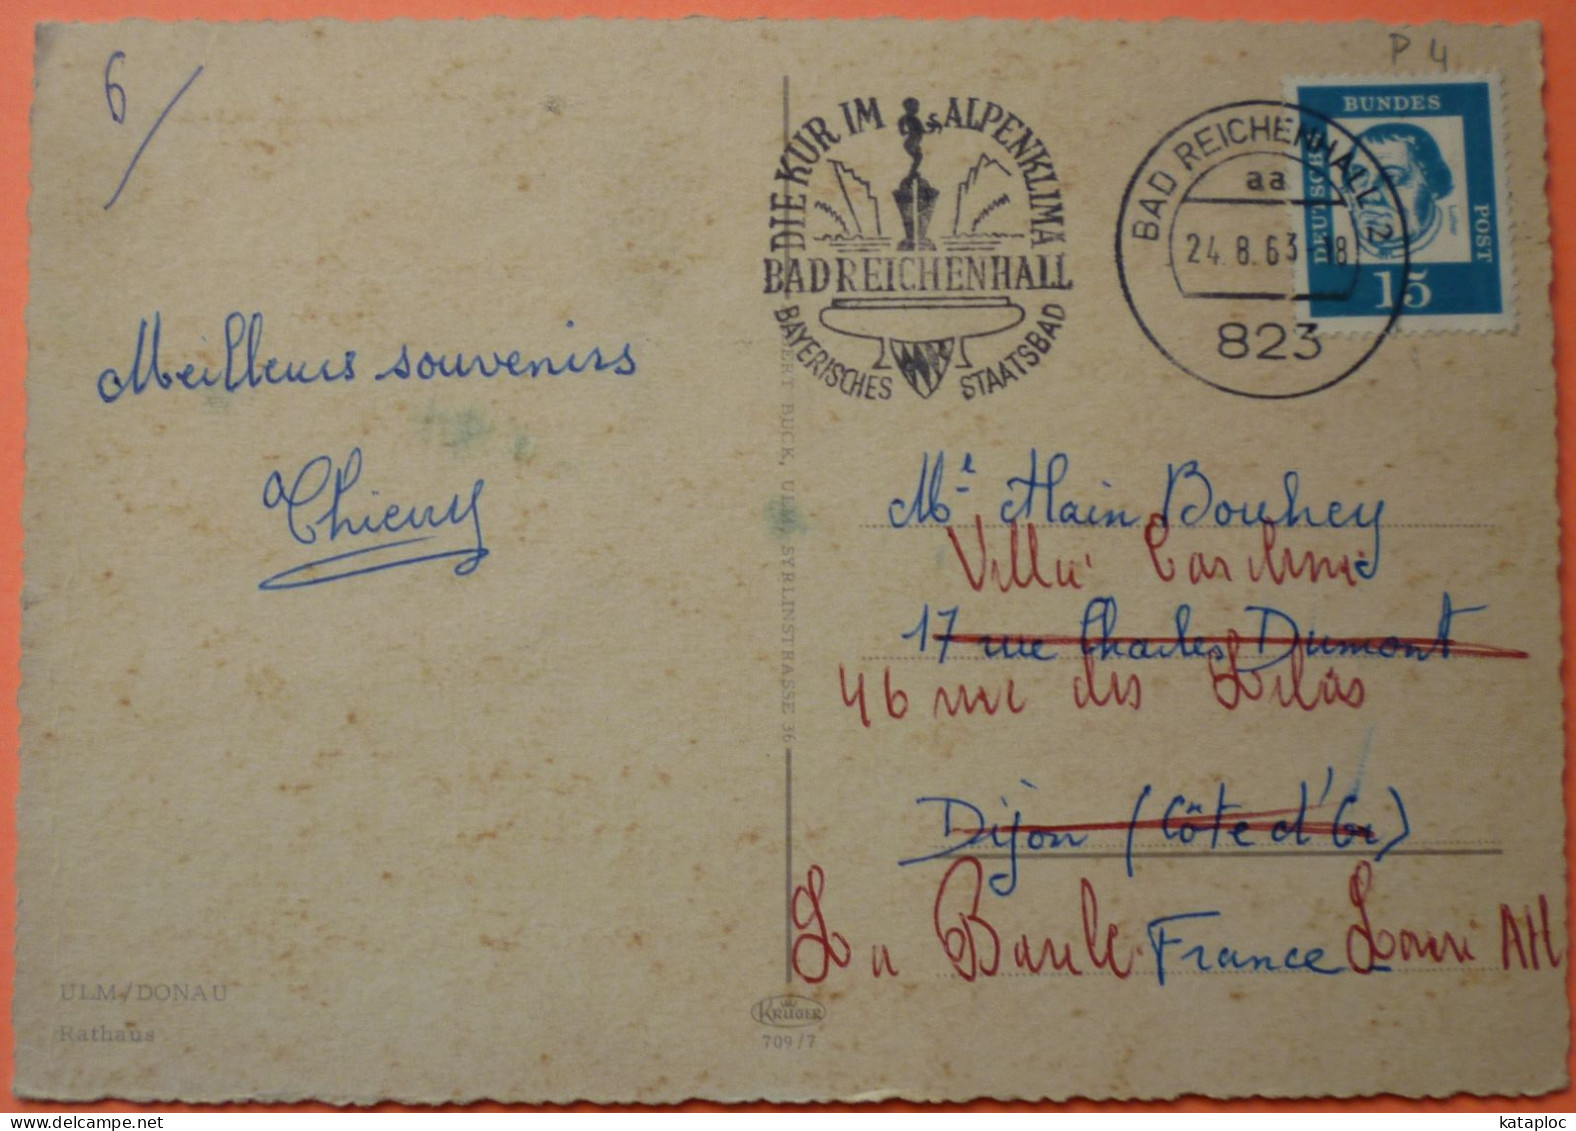 6
P 4
DIE KUR IM ALPENKLIMA
BAD REICHENHALL
BAYERISCHES STAATSBAD
BAD REICHENHALL 2
aa
24.8.63-18
823
DEUTSCHE BUNDES POST
15
Meilleurs souvenirs
Thierry
Mr Alain Bouhey
Villa
17 rue Charles Dumont
46 rue des Lilas
Dijon (Côte d'Or)
La Baule France Loire Atl
BUCK, ULM, SYRLINSTRASSE 36
ULM/DONAU
Rathaus
KRÜGER
709/7
kataploc